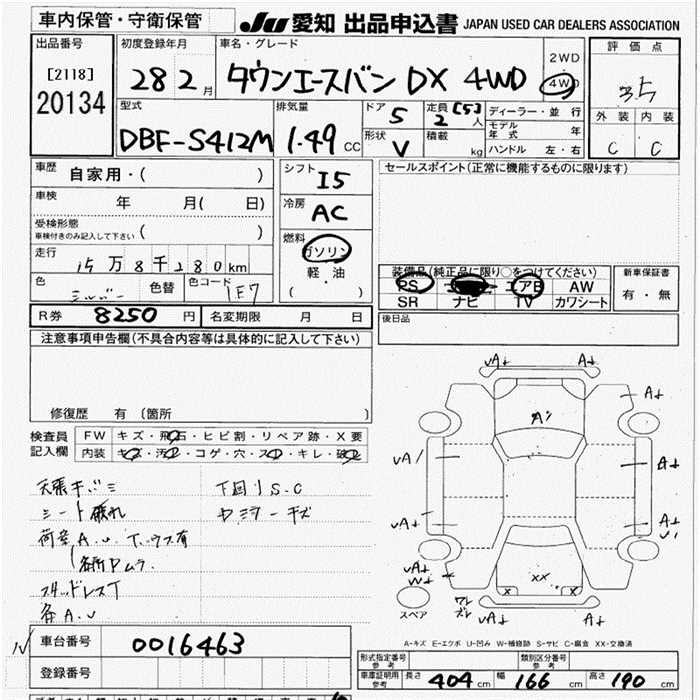 車内保管・守衛保管
JU 愛知 出品申込書 JAPAN USED CAR DEALERS ASSOCIATION
出品番号
[2118]
20134
初度登録年月
28 2 月
車名・グレード
タウンエースバン DX 4WD
2WD
4WD
評価点
3.5
外装 内装
C C
型式
DBF-S412M
排気量
1.49 CC
ドア 5
定員 [5]
2 人
形状 V
積載 kg
ディーラー・並行
モデル年式 年
ハンドル 左・右
車歴
自家用・( )
車検
年 月( 日)
受検形態
車検付きのみ記入して下さい ( )
走行
15万8千280km
色 シルバー
色替
色コード 1E7
シフト
I5
冷房
AC
燃料
ガソリン
軽・油
( )
セールスポイント(正常に機能するものに限ります)
装備品(純正品に限り○をつけてください)
PS エアB AW
SR ナビ TV カワシート
新車保証書
有・無
R券 8250 円
名変期限 月 日
後日品
注意事項申告欄(不具合内容等は具体的に記入して下さい)
修復歴 有 (箇所 )
検査員記入欄
FW キズ・飛石・ヒビ割・リペア跡・X要
内装 キズ・汚れ・コゲ・穴・スレ・キレ・破れ
天張キバミ
シート破れ
荷室A.U
各所Pムラ
スタッドレスT
各A.U
下回りS.C
A↓
A↓
A1
A↓
UA1
A↓
UA↓
A↓
U1
UA↓
W↓
XX
UA↓
A↓
スペア
A-キズ E-エクボ U-凹み W-補修跡 S-サビ C-腐食 XX-交換済
車台番号
0016463
登録番号
形式指定番号 参考
類別区分番号 参考
車庫証明用 参考
長さ 404 cm 幅 166 cm 高さ 190 cm